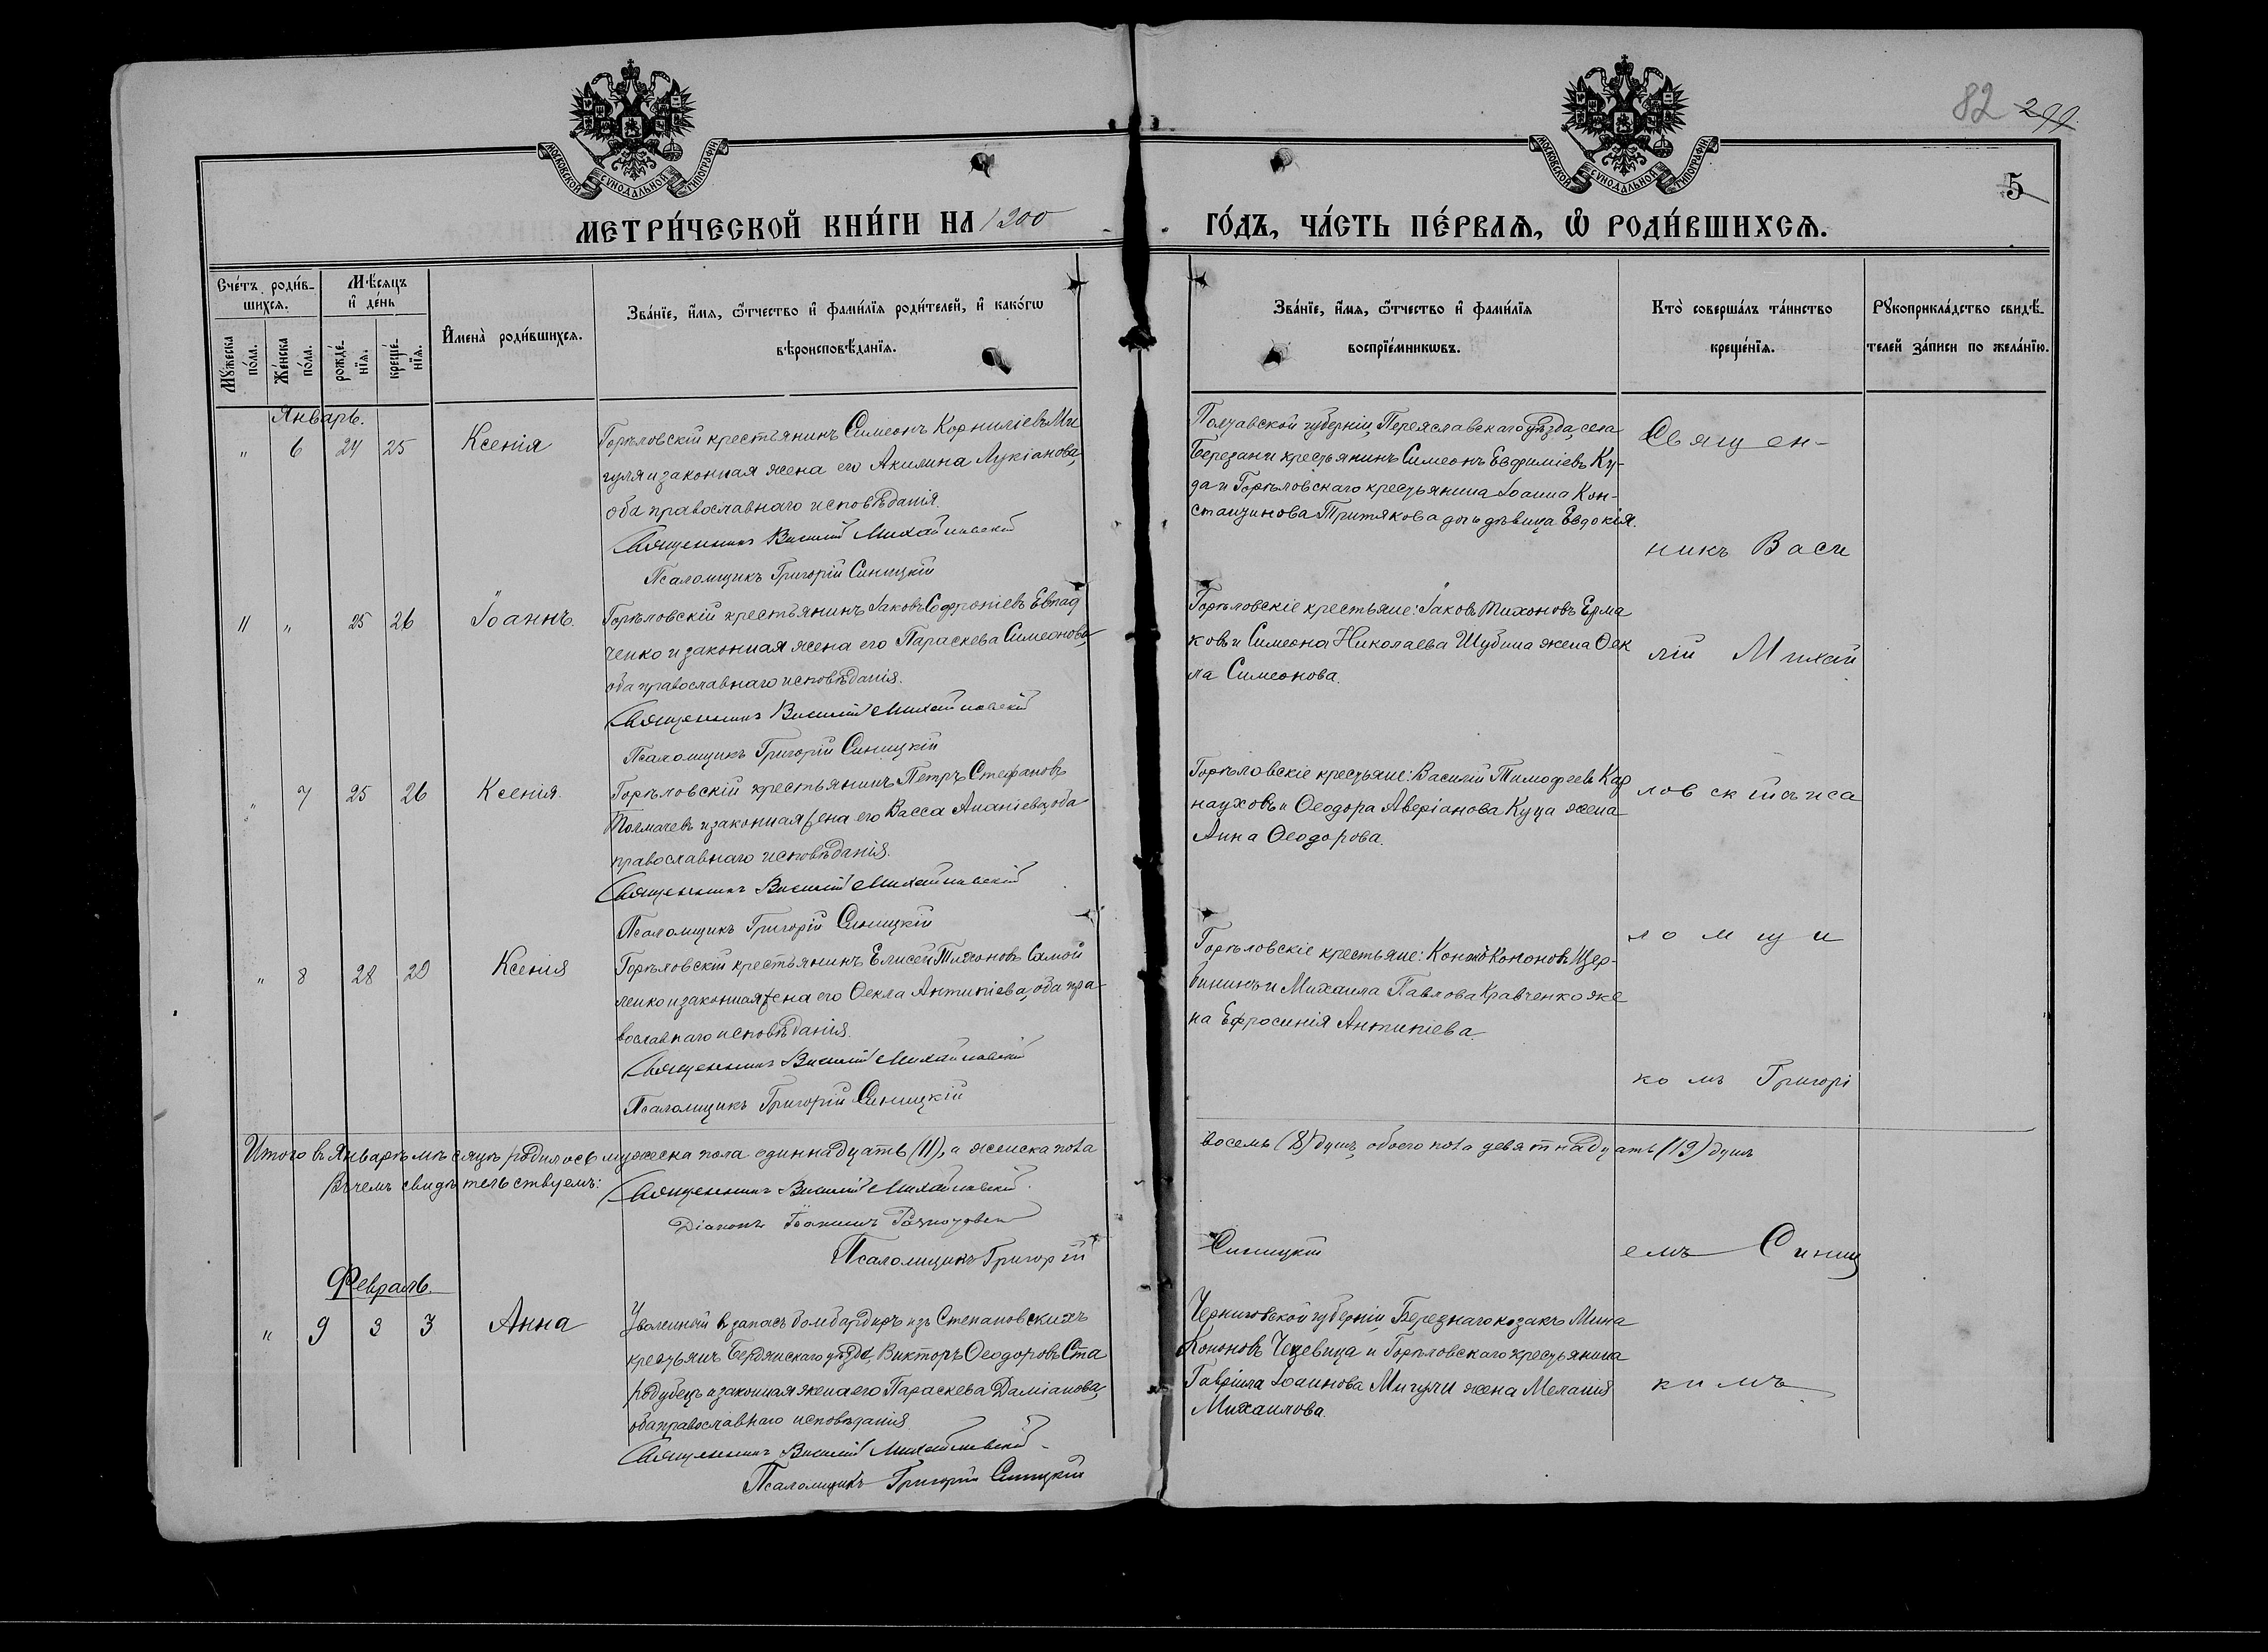 82 299.
МОСКОВСКОЙ СУНОДАЛЬНОЙ ТИПОГРАФІИ
МОСКОВСКОЙ СУНОДАЛЬНОЙ ТИПОГРАФІИ
5
МЕТРИ́ЧЕСКОЙ КНИ́ГИ НА 1900
ГО́ДЪ, ЧА́СТЬ ПЕ́РВАѦ, Ѡ҆ РОДИ́ВШИХСѦ.
Сче́тъ роди́в-
шихсѧ.
Мѣ́сѧцъ
и҆ де́нь
Мꙋ́жеска
по́ла.
Же́нска
по́ла.
рожде́-
нїѧ.
креще́-
нїѧ.
И҆мена̀ роди́вшихсѧ.
Зва́нїе, и҆́мѧ, ѻ҆́тчество и҆ фами́лїѧ роди́телей, и҆ како́гѡ
вѣроисповѣ́данїѧ.
Зва́нїе, и҆́мѧ, ѻ҆́тчество и҆ фами́лїѧ
воспрїе́мникѡвъ.
Кто̀ соверша́лъ та́инство
креще́нїѧ.
Рꙋкоприкла́дство свидѣ́-
телей за́писи по жела́нїю.
Январь.
" 6 24 25 Ксенія
Горѣловскій крестьянинъ Симеонъ Корниліевъ Ми
гуля и законная жена его Акилина Лукіанова,
оба православнаго исповѣданія.
Священникъ Василій Михайловскій
Псаломщикъ Григорій Синицкій
Полтавской губерніи, Переяславскаго уѣзда, села
Березани крестьянинъ Симеонъ Евфиміевъ Ку-
да и Горѣловскаго крестьянина Іоанна Кон-
стантинова Притякова дочь дѣвица Евдокія.
Священ-
никъ Васи
11 " 25 26 Іоаннъ.
Горѣловскій крестьянинъ Іаковъ Софроніевъ Евпад
ченко и законная жена его Параскева Симеонова,
оба православнаго исповѣданія.
Священникъ Василій Михайловскій
Псаломщикъ Григорій Синицкій
Горѣловскіе крестьяне: Іаковъ Тихоновъ Ерма
ковъ и Симеона Николаева Шубина жена Ѳек
ла Симеонова.
лій Михай
" 7 25 26 Ксенія.
Горѣловскій крестьянинъ Петръ Стефановъ
Толмачевъ и законная жена его Васса Ананіева, оба
православнаго исповѣданія.
Священникъ Василій Михайловскій
Псаломщикъ Григорій Синицкій
Горѣловскіе крестьяне: Василій Тимофеевъ Кар
науховъ и Ѳеодора Аверіанова Куца жена
Анна Ѳеодорова.
ловскій съ пса
" 8 28 29 Ксенія
Горѣловскій крестьянинъ Елисей Тихоновъ Самой
ленко и законная жена его Ѳекла Антипіева, оба пра-
вославнаго исповѣданія.
Священникъ Василій Михайловскій
Псаломщикъ Григорій Синицкій
Горѣловскіе крестьяне: Кононъ Кононовъ Щер-
бининъ и Михаила Павлова Кравченко же
на Ефросинія Антипіева.
ломщи
комъ Григорі
Итого въ Январѣ мѣсяцѣ родилось мужеска пола одиннадцать (11), а женска пола
восемь (8) душъ, обоего пола девятнадцать (19) душъ
Въ чемъ свидѣтельствуемъ:
Священникъ Василій Михайловскій.
Діаконъ Іоаннъ
Псаломщикъ Григорій
Синицкій
емъ Синиц
Февраль.
" 9 3 3 Анна
Уволенный въ запасъ бомбардиръ изъ Степановскихъ
крестьянъ Бердянскаго уѣзда, Викторъ Ѳеодоровъ Ста
родубецъ и законная жена его Параскева Даміанова,
оба православнаго исповѣданія
Священникъ Василій Михайловскій
Псаломщикъ Григорій Синицкій
Черниговской губерніи Березнаго козакъ Мина
Кононовъ Чечевица и Горѣловскаго крестьянина
Гавріила Іоаннова Мигули жена Меланія
Михаилова.
кимъ